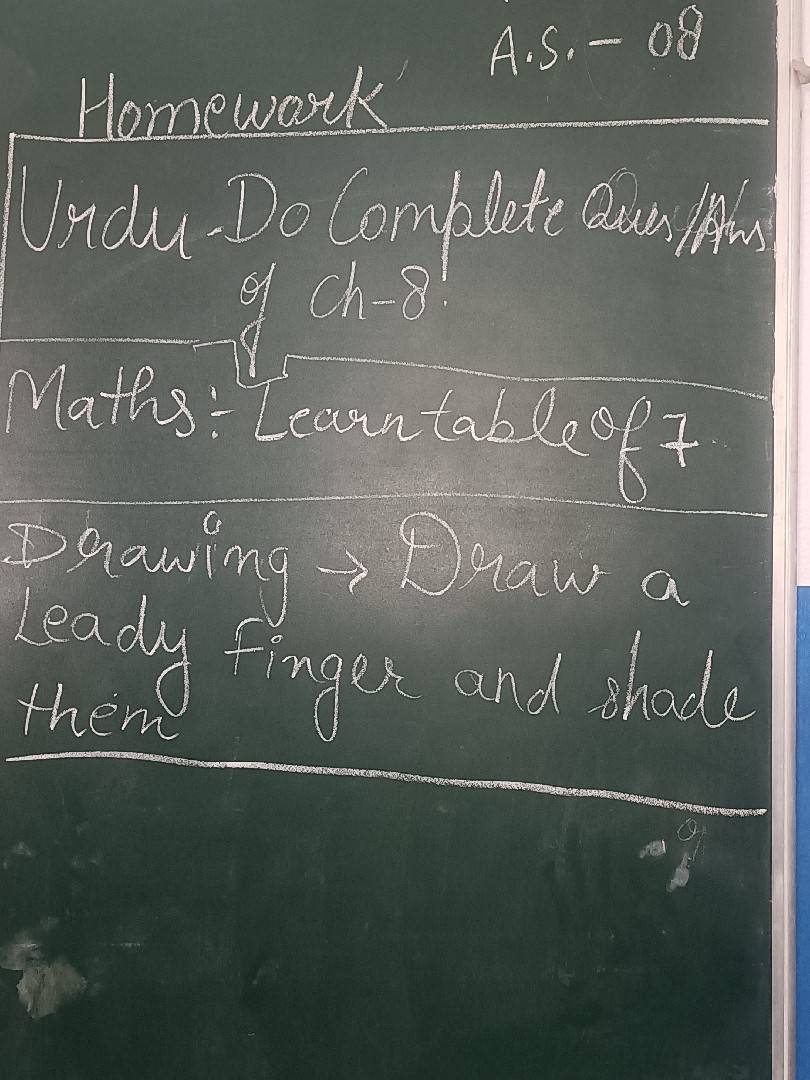 A.S. - 08
Homework
Urdu - Do Complete Ques/Ans
of Ch-8.
Maths:- Learn table of 7
Drawing → Draw a
Leady finger and shade
them